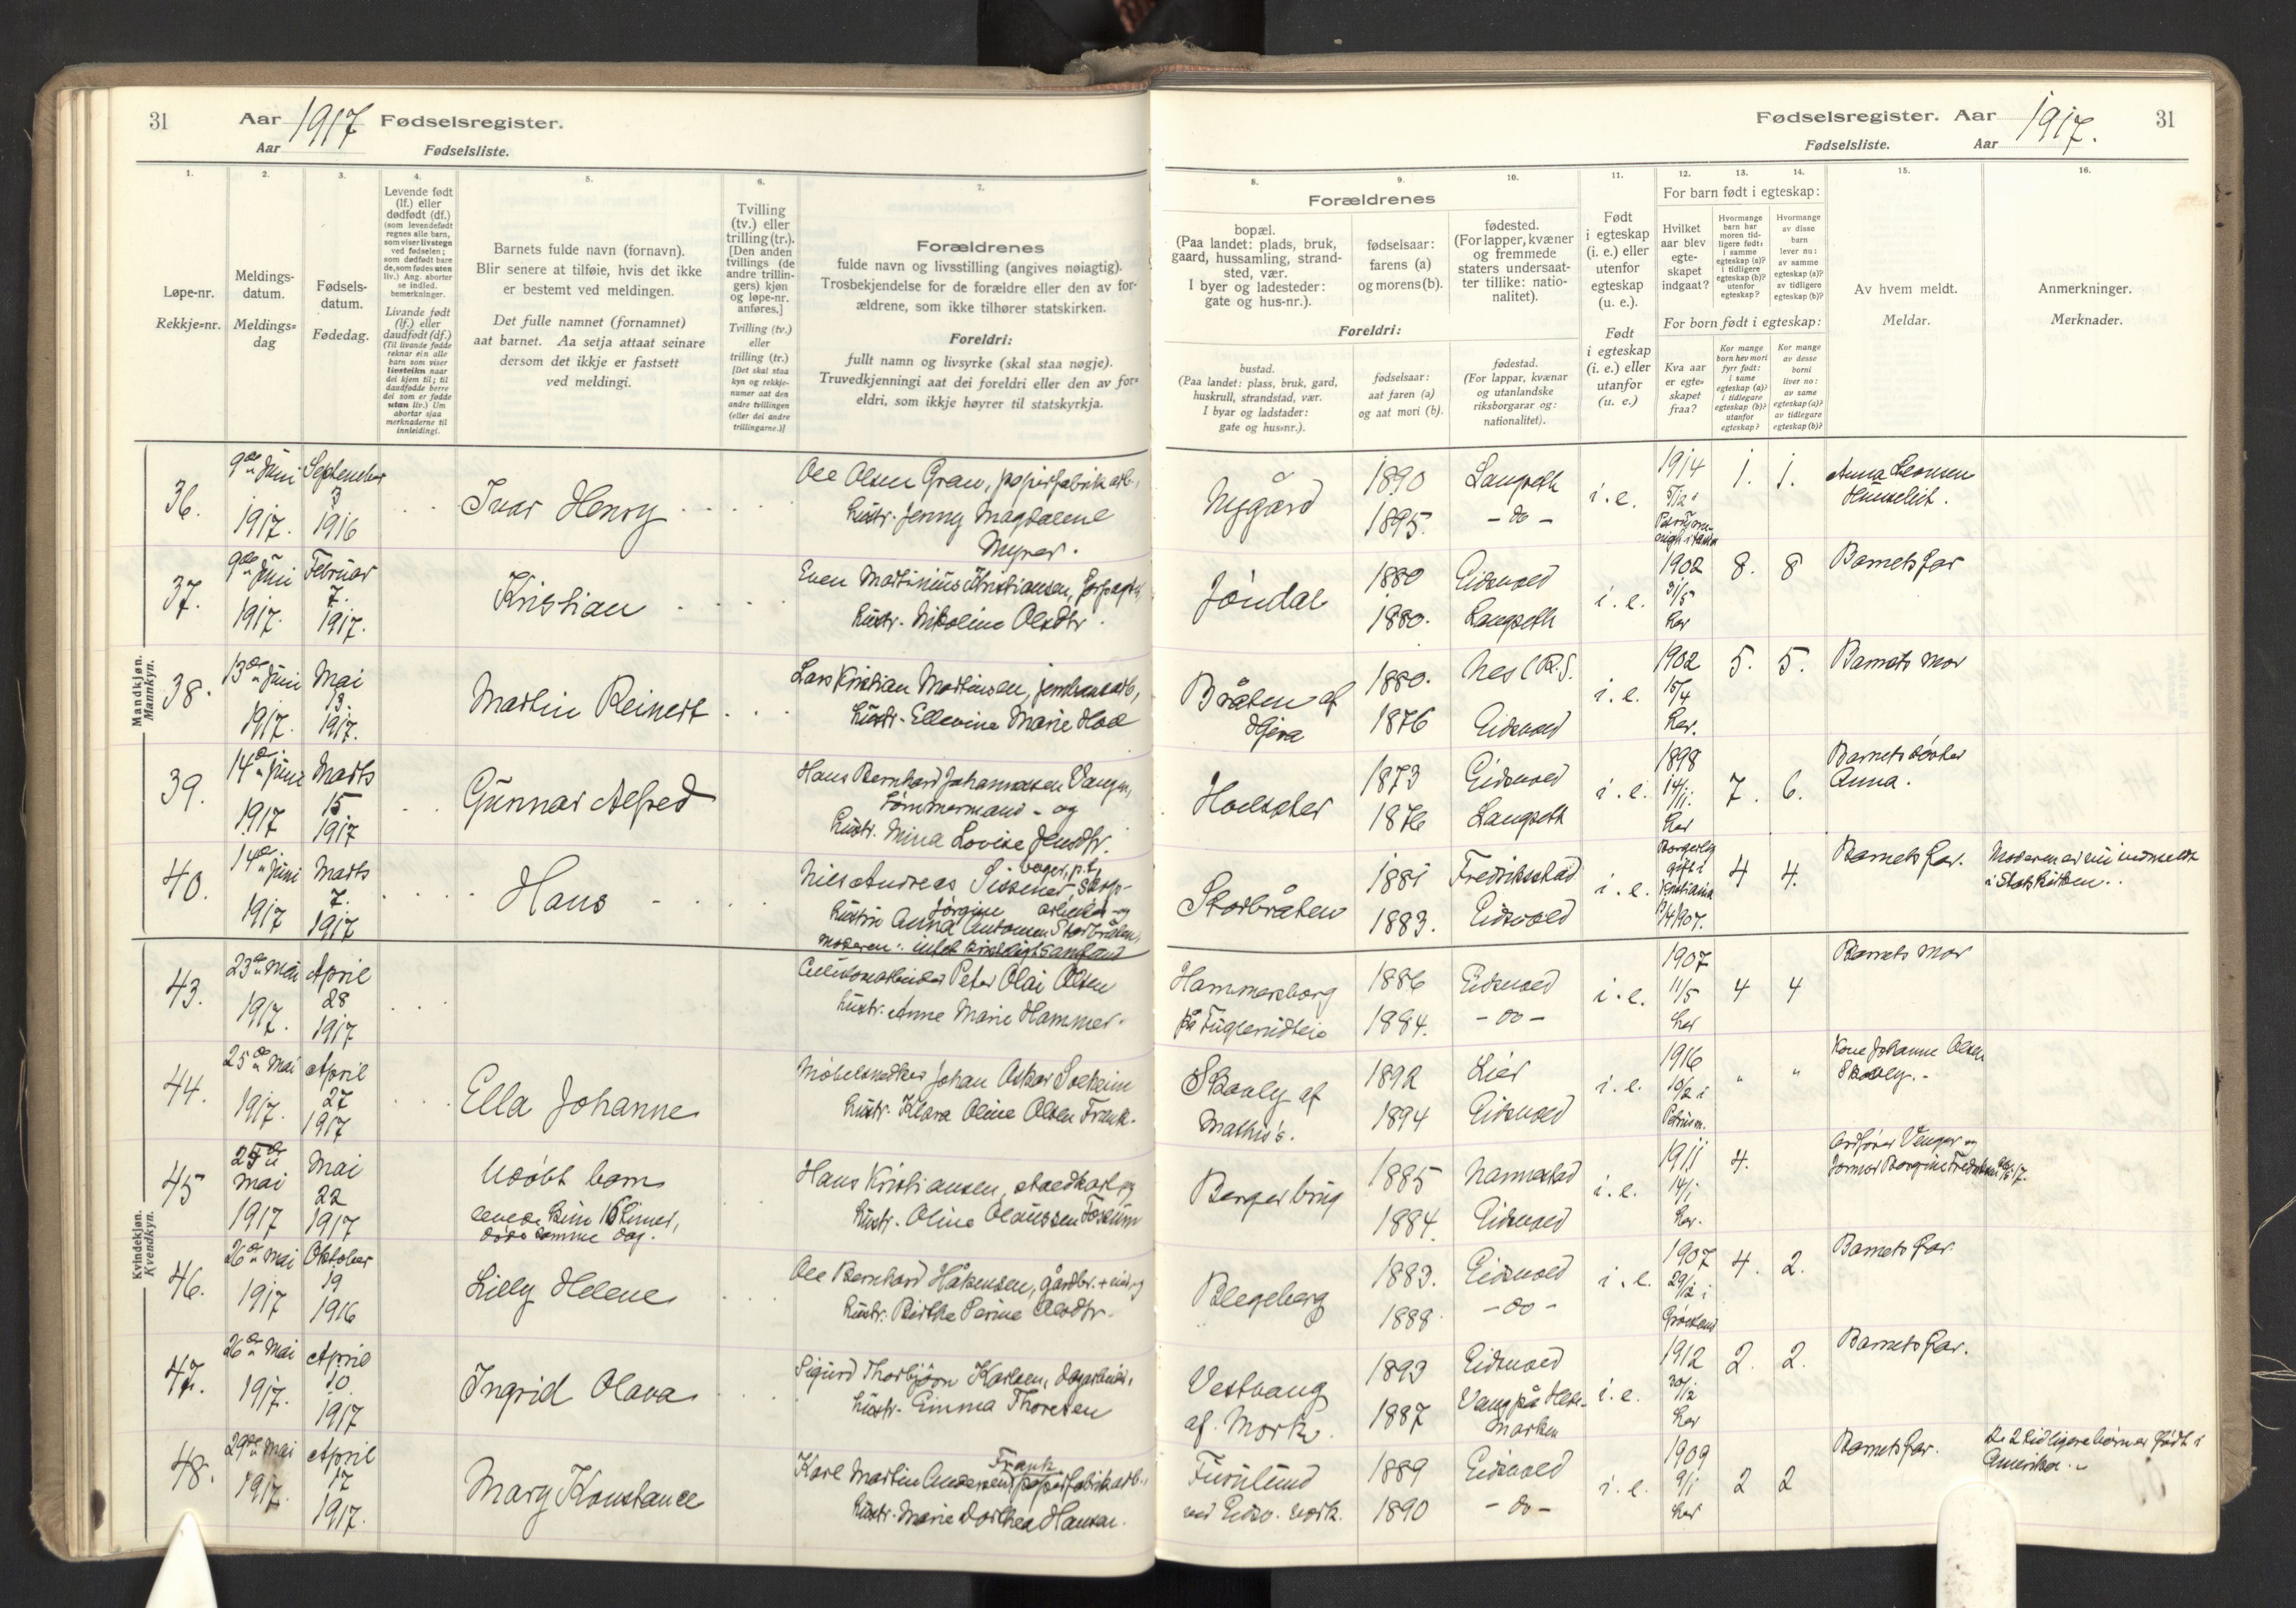 31
Aar 1917 Fødselsregister.
Aar Fødselsliste.
1.
2.
3.
4.
5.
6.
7.
Løpe-nr.
Rekkje=nr.
Meldings-
datum.
Meldings=
dag
Fødsels-
datum.
Fødedag.
Levende født
(lf.) eller
dødfødt (df.)
(som levendefødt
regnes alle barn,
som viser livstegn
ved fødselen;
som dødfødt bare
de, som fødes uten
liv.) Ang. aborter
se indled.
bemerkninger.
Livande født
(lf.) eller
daudfødt (df.)
(Til livande fødde
reknar ein alle
barn som viser
livsteikn naar
dei kjem til; til
daudfødde berre
dei som er fødde
utan liv.) Um
abortar sjaa
merknaderne til
innleidingi.
Barnets fulde navn (fornavn).
Blir senere at tilføie, hvis det ikke
er bestemt ved meldingen.
Det fulle namnet (fornamnet)
aat barnet. Aa setja attaat seinare
dersom det ikkje er fastsett
ved meldingi.
Tvilling
(tv.) eller
trilling (tr.).
[Den anden
tvillings (de
andre trillin-
gers) kjøn
og løpe-nr.
anføres.]
Tvilling (tv.)
eller
trilling (tr.)
[Det skal staa
kyn og rekkje-
numer aat den
andre tvillingen
(eller dei andre
trillingarne.)]
Forældrenes
fulde navn og livsstilling (angives nøiagtig).
Trosbekjendelse for de forældre eller den av for-
ældrene, som ikke tilhører statskirken.
Foreldri:
fullt namn og livsyrke (skal staa nøgje).
Truvedkjenningi aat dei foreldri eller den av for=
eldri, som ikkje høyrer til statskyrkja.
Mandkjøn.
Mannkyn.
36.
9de Juni
1917.
September
3
1916
Ivar Henry
Ole Olsen Gran, papirfabrikarb.,
hustr. Jenny Magdalene
Myrer.
37.
9de Juni
1917.
Februar
7.
1917.
Kristian
Even Martinius Kristiansen,
hustr. Nikoline Olsdtr.
38.
13de Juni
1917.
Mai
13.
1917.
Martin Reinert
Lars Kristian Martinsen, jernbanearb.,
hustr. Ellevine Marie Hol
39.
14de Juni
1917
Marts
15
1917
Gunnar Alfred
Hans Bernhard Johannesen Vangen,
tømmermand - og
hustr. Mina Lovise Jensdtr.
40.
14de Juni
1917
Marts
7.
1917
Hans
Nils Andreas
bager, p.t.
Jørgine arbeider og
hustru Anna Antonsen Storbråten
moderen: intet kirkeligt samfund
Kvindekjøn.
Kvendkyn.
43.
23de Mai
1917.
April
28
1917
Cellulosearbeider Peter Olai Olsen
hustr. Anne Marie Hammer.
44.
25de Mai
1917.
April
27
1917
Ella Johanne
Møbelsnedker Johan Oskar Solheim
hustr. Klara Oline Olsen Frank.
45
25de
Mai
1917
Mai
22
1917
Udøbt barn
levede kun 16 timer,
døde samme dag.
Hans Kristiansen, staldkarl og
hustr. Oline Olaussen Fossum
46.
26de Mai
1917
Oktober
19
1916
Lilly Helene
Ole Bernhard Håkensen, gårdbr.
hustr. Birthe Perine Olsdtr.
47.
26de Mai
1917.
April
10
1917
Ingrid Olava
Sigurd Thorbjørn Karlsen, dagarbeider,
hustr. Emma Thoresen
48.
29de Mai
1917.
April
17
1917.
Mary Konstance
Frank
Karl Martin Andersen, papirfabrikarb.,
hustr. Marie Dorthea Hansen.
Fødselsregister. Aar 1917.
31
Fødselsliste. Aar
8.
9.
10.
11.
12.
13.
14.
15.
16.
Forældrenes
bopæl.
(Paa landet: plads, bruk,
gaard, hussamling, strand-
sted, vær.
I byer og ladesteder:
gate og hus-nr.).
fødselsaar:
farens (a)
og morens (b).
fødested.
(For lapper, kvæner
og fremmede
staters undersaat-
ter tillike: natio-
nalitet).
Foreldri:
bustad.
(Paa landet: plass, bruk, gard,
huskrull, strandstad, vær.
I byar og ladstader:
gate og hus=nr.).
fødselsaar:
aat faren (a)
og aat mori (b).
fødestad.
(For lappar, kvænar
og utanlandske
riksborgarar og:
nationalitet).
Født
i egteskap
(i. e.) eller
utenfor
egteskap
(u. e.).
Født
i egteskap
(i. e.) eller
utanfor
(u. e.)
For barn født i egteskap:
Hvilket
aar blev
egte-
skapet
indgaat?
Hvormange
barn har
moren tid-
ligere født:
i samme
egteskap (a)?
i tidligere
egteskap (b)?
utenfor
egteskap?
Hvormange
av disse
barn
lever nu:
av samme
egteskap (a)?
av tidligere
egteskap (b)?
For born født i egteskap:
Kva aar
er egte=
skapet
fraa?
Kor mange
born hev mori
fyrr født:
i same
egteskap (a)?
i tidlegare
egteskap (b)?
utanfor
egteskap?
Kor mange
av desse
borni
liver no:
av same
egteskap (a)?
av tidlegare
egteskap (b)?
Av hvem meldt.
Meldar.
Anmerkninger.
Merknader.
Nygård
1890
1895.
Langseth
- do -
i. e.
1914
1.
1.
Anna Leonsen
Jøndal
1880
1880.
Eidsvold
Langseth
i. e.
1902
31/5
her
8.
8
Barnets far
Bråten af
1880.
1876
Nes (R.)
Eidsvold
i. e.
1902
15/4
her.
5.
5.
Barnets mor
Holsæter
1873
1876
Eidsvold
Langseth
i. e.
1898
14/11.
her
7.
6.
Barnets søster
Anna.
Storbråten
1881
1883.
Fredriksstad
Eidsvold
i. e.
Borgerlig
gift i
Kristiania
4
4.
Barnets far.
Moderen er nu indmeldt
i Statskirken.
Hammersborg
på Fuglerudeie
1886
1884.
Eidsvold
- do -
i. e.
1907
11/5
her
4
4
Barnets mor
Skoaly af
Mathis's.
1892
1894
Lier
Eidsvold
i. e.
1916
10/2 i
"
"
Kone Johanne Olsen
Berger brug
1885
1884.
Nannestad
Eidsvold
i. e.
1911
14/1
her.
4.
Blegeberg
1883.
1888
Eidsvold
- do -
i. e.
1907
29/12 i
4.
2.
Barnets far
Vestvang
af Mork.
1893
1887
Eidsvold
Vang på Hede-
marken
i. e.
1912
30/12
her
2.
2.
Barnets far.
Furulund
ved Eidsv. verk.
1889
1890
Eidsvold
- do -
i. e.
1909
9/1
her
2
2
Barnets far.
De 2 tidligere børn er født i
Amerika.